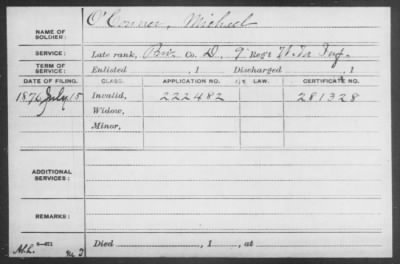 NAME OF SOLDIER: O'Connor, Michael
SERVICE: Late rank, Priv Co. D, 9 Reg't
TERM OF SERVICE: Enlisted , 1 Discharged , 1
DATE OF FILING. CLASS. APPLICATION NO. LAW. CERTIFICATE NO.
1876 July 15 Invalid, 222482 281328
Widow,
Minor,
ADDITIONAL SERVICES:
REMARKS:
Died , 1 , at